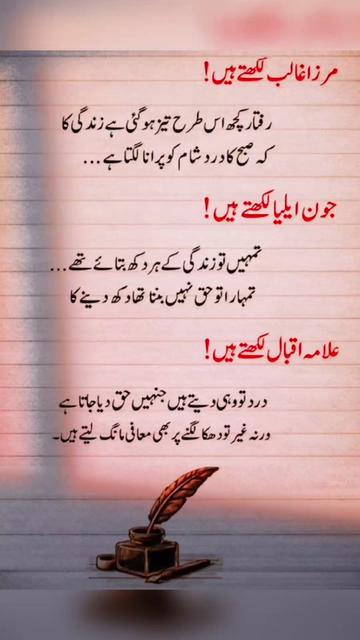 مرزا غالب لکھتے ہیں!
رفتار کچھ اس طرح تیز ہو گئی ہے زندگی کا
کہ صبح کا درد شام کو پرانا لگتا ہے...
جون ایلیا لکھتے ہیں!
تمہیں تو زندگی کے ہر دکھ بتائے تھے...
تمہارا تو حق نہیں بنتا تھا دکھ دینے کا
علامہ اقبال لکھتے ہیں!
درد تو وہی دیتے ہیں جنہیں حق دیا جاتا ہے
ورنہ غیر تو دھکا لگنے پر بھی معافی مانگ لیتے ہیں۔